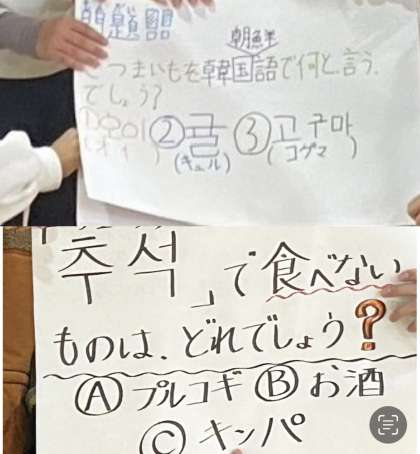 問題
朝鮮
さつまいもを韓国語で何と言う
でしょう?
①오이 ②귤 ③고구마
(オイ) (キュル) (コグマ)
「추석」で食べない
ものは、どれでしょう?
Ⓐプルコギ Ⓑお酒
Ⓒキンパ